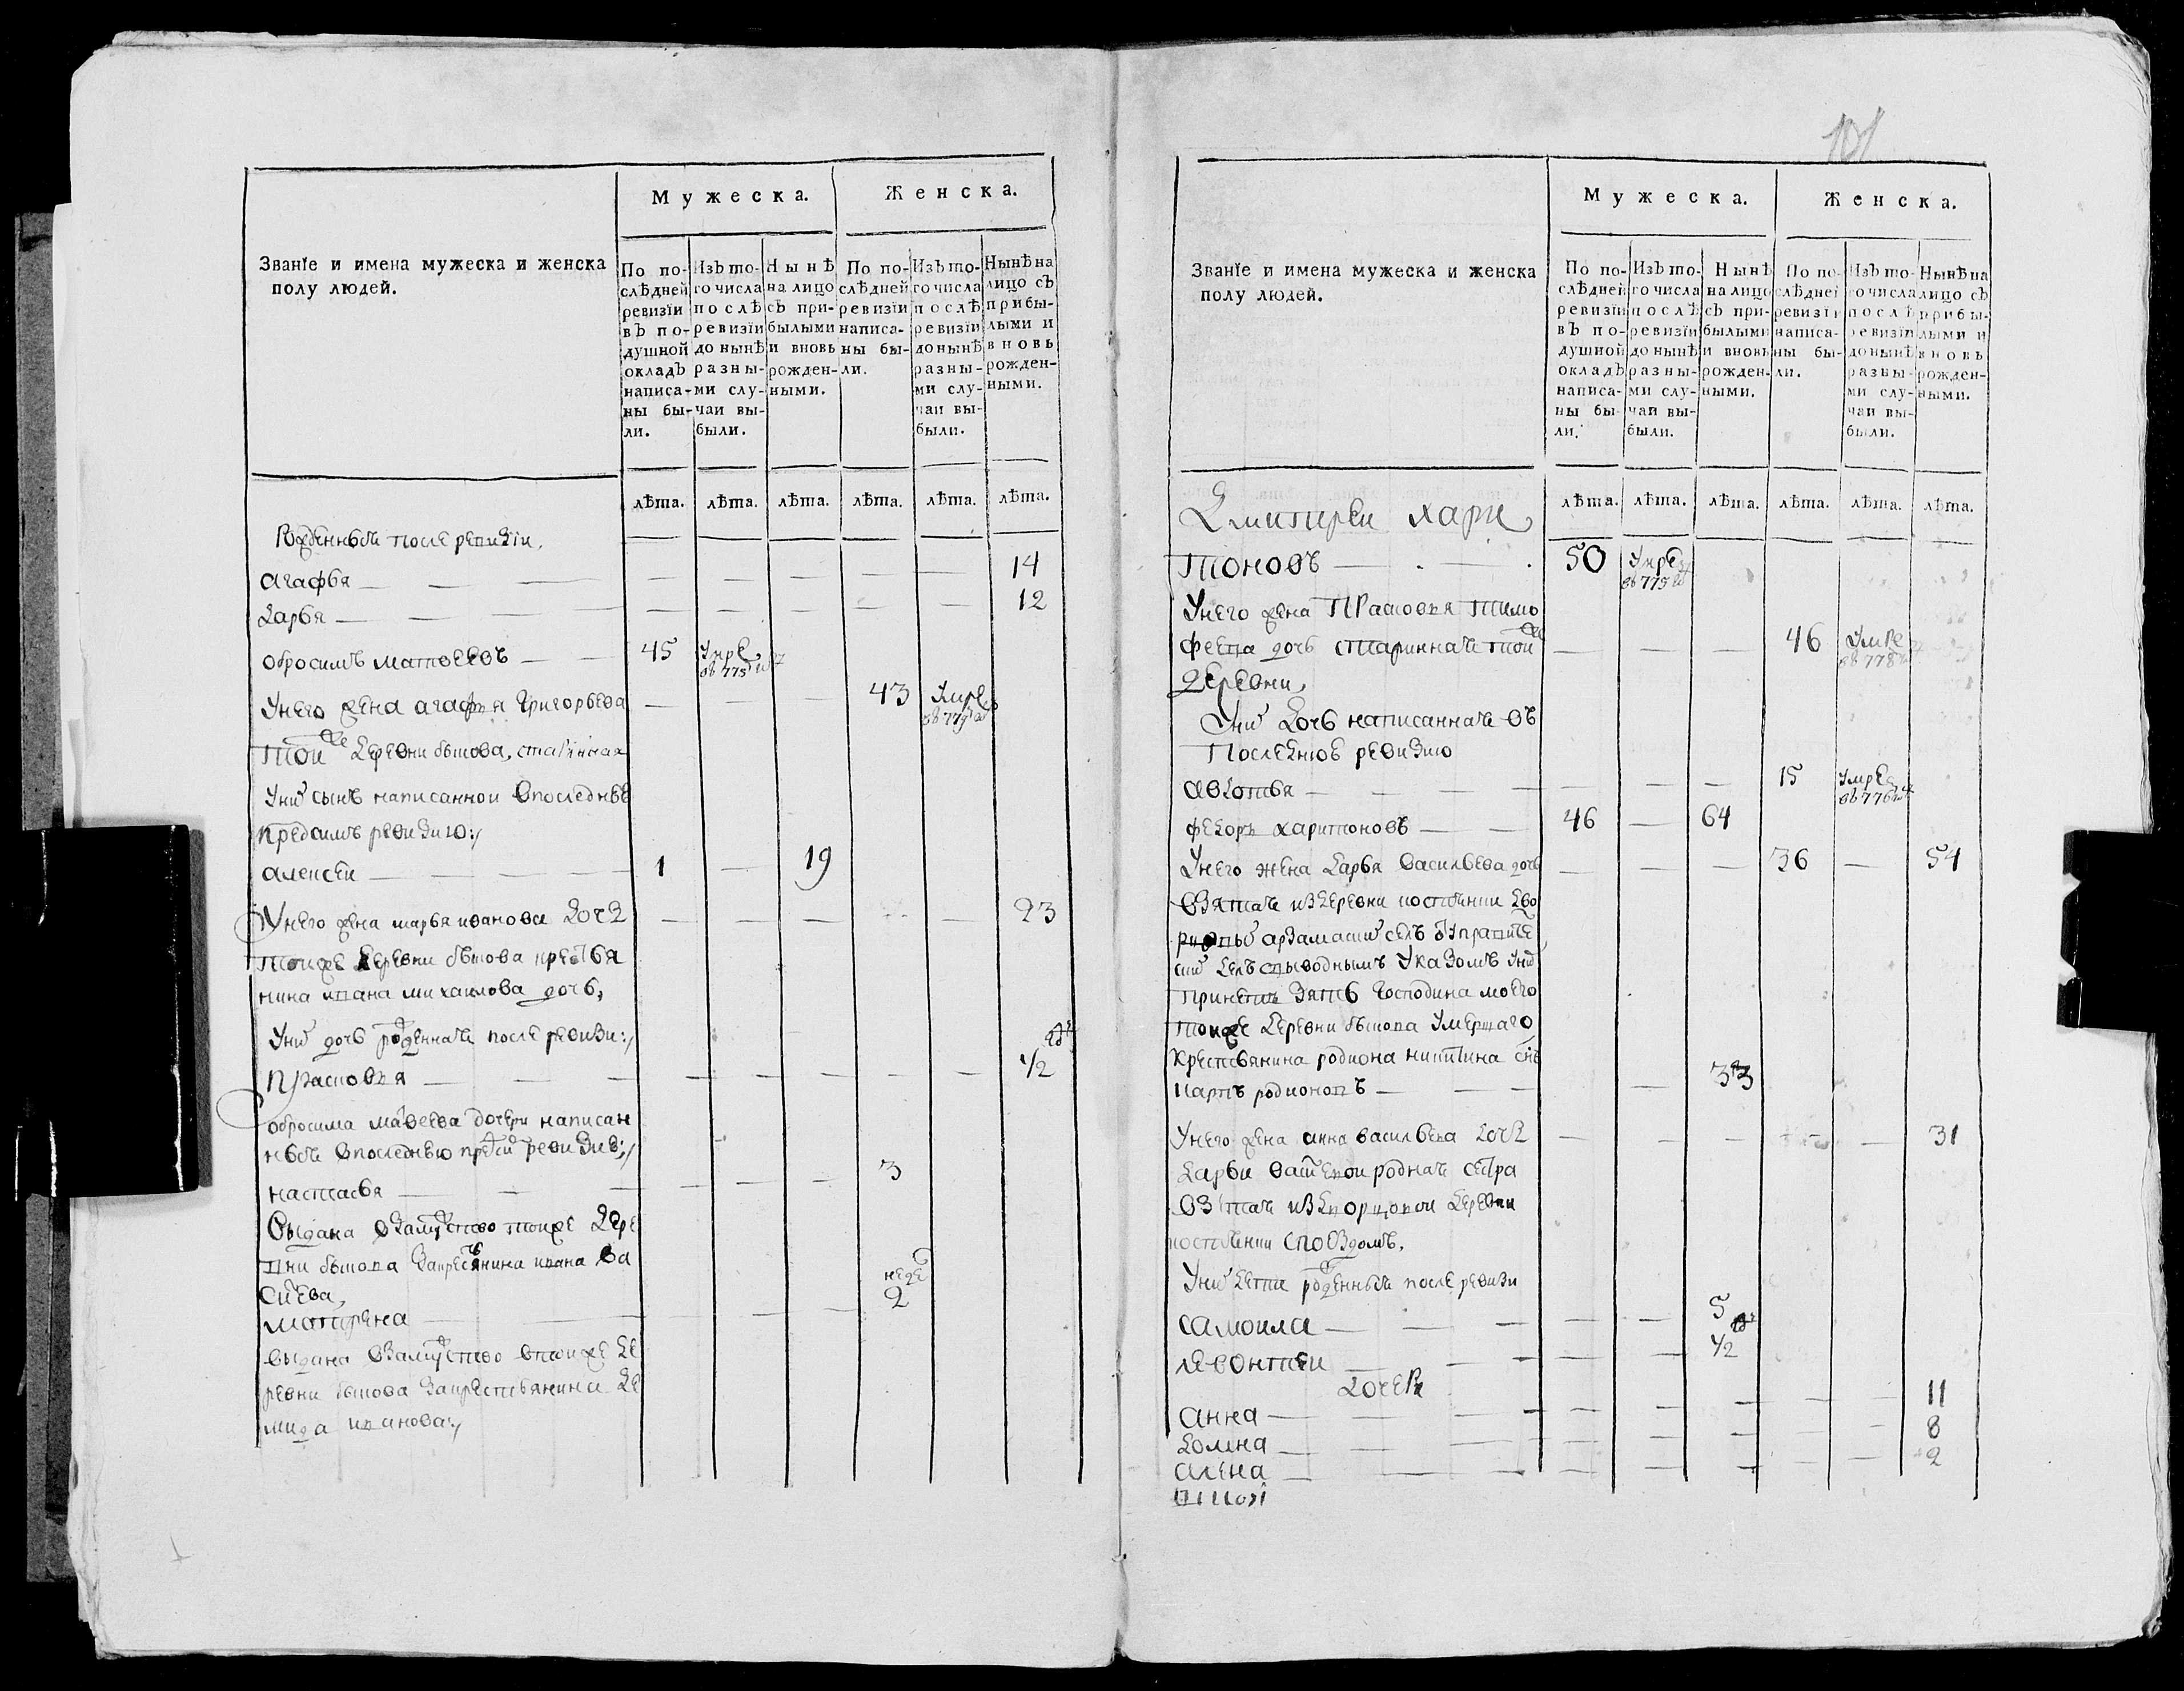 Мужеска. Женска.
Званїе и имена мужеска и женска
полу людей.
По по-
слѣдней
ревизїи
въ по-
душной
окладъ
написа-
ны бы-
ли.
Изъ то-
го числа
послѣ
ревизїи
до нынѣ
разны-
ми слу-
чаи вы-
были.
Нынѣ
на лицо
съ при-
былыми
и вновь
рожден-
ными.
По по-
слѣдней
ревизїи
написа-
ны бы-
ли.
Изъ то-
го числа
послѣ
ревизїи
до нынѣ
разны-
ми слу-
чаи вы-
были.
Нынѣ на
лицо съ
прибы-
лыми и
вновь
рожден-
ными.
лѣта. лѣта. лѣта. лѣта. лѣта. лѣта.
Рожденныя после ревизїи,
агафья — 14
дарья — 12
обросимъ матвеевъ — 45 умре въ 775
Унего жена агафья григорьева — 43 умре въ 779
тои же деревни бытова, старинная
Уних сынъ написаннои впоследнею
предсимъ ревизию:/
алексеи — 1 — 19
Унего жена марья иванова дочь — 23
тоиже деревни бытова крестья
нина ивана михаилова дочь,
Уних дочь рожденная после ревизи:/
прасковья — 1/2
обросима матвеева дочери написан
ныя впоследнею пред сим ревизию:/
настасья — 3
Выдана взамужство тоиже дере
вни бытова закрестьянина ивана ва
силева,
матрена — неде 2
выдана взамужство втоиже де
ревни бытова закрестьянина де
мида иванова:/
101
Мужеска. Женска.
Званїе и имена мужеска и женска
полу людей.
По по-
слѣдней
ревизїи
въ по-
душной
окладъ
написа-
ны бы-
ли.
Изъ то-
го числа
послѣ
ревизїи
до нынѣ
разны-
ми слу-
чаи вы-
были.
Нынѣ
на лицо
съ при-
былыми
и вновь
рожден-
ными.
По по-
слѣдней
ревизїи
написа-
ны бы-
ли.
Изъ то-
го числа
послѣ
ревизїи
до нынѣ
разны-
ми слу-
чаи вы-
были.
Нынѣ на
лицо съ
прибы-
лыми и
вновь
рожден-
ными.
лѣта. лѣта. лѣта. лѣта. лѣта. лѣта.
Дмитреи хари
тоновъ — 50 умре въ 775
Унего жена Прасковья тимо
феева дочь старинная тои же — 46 умре въ 778
деревни,
Уних дочь написанная въ
Последнюю ревизию
авдотья — 15 умре въ 776
федоръ харитоновъ — 46 — 64
Унего жена дарья васильева дочь — 36 — 54
Взятая издеревни
Уних
принетъ зять господина моего
тоиже деревни бытова умершаго
крестьянина родиона никитина сн
карпъ родионовъ — 33
Унего жена анна васильева дочь — 31
дарьи родная сестра
взятая деревни
Уних дети рожденныя после ревизи
самоила — 5
левонтеи — 1/2
дочери
анна — 11
домна — 8
алена — 2